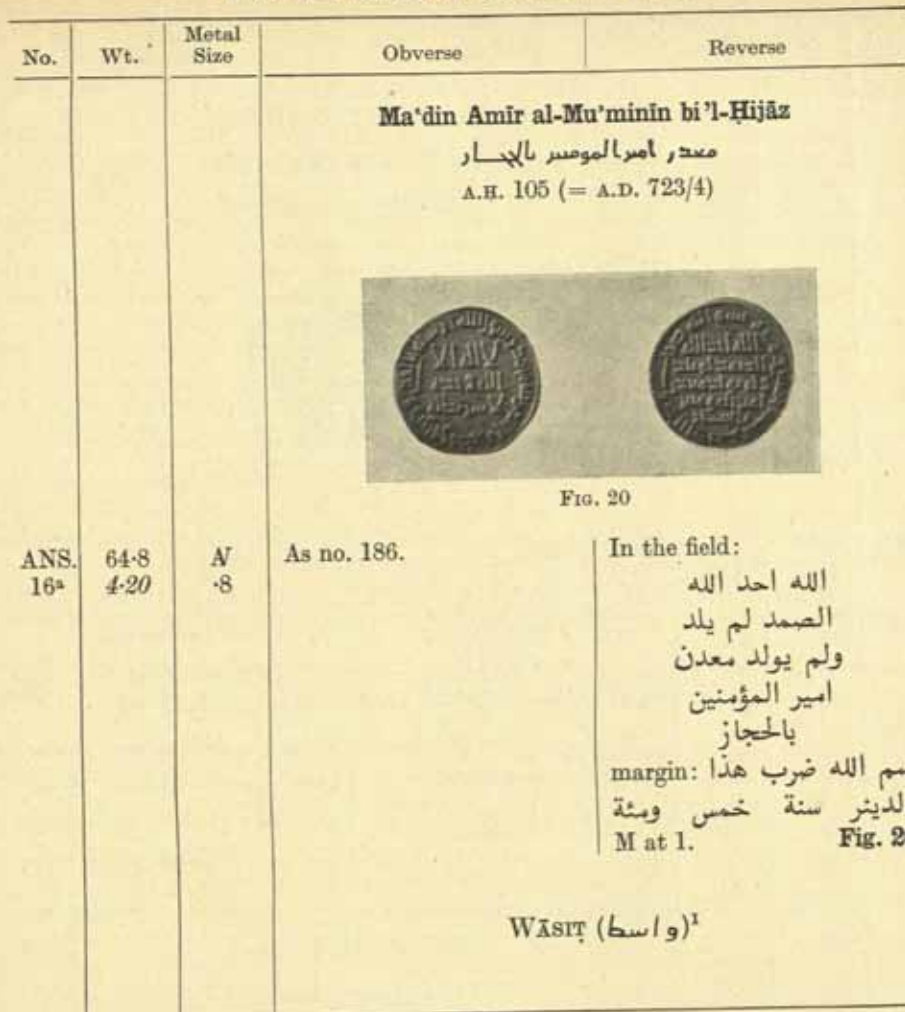 No. Wt. Metal Size Obverse Reverse
Ma‘din Amīr al-Mu’minīn bi’l-Ḥijāz
معدن امير المومنين بالحجاز
A.H. 105 (= A.D. 723/4)
FIG. 20
ANS. 64·8 N As no. 186. In the field:
16ᵃ 4·20 ·8 الله احد الله
الصمد لم يلد
ولم يولد معدن
امير المؤمنين
بالحجاز
margin: سم الله ضرب هذا
لدينر سنة خمس ومئة
M at 1. Fig. 2
WĀSIṬ (واسط)¹